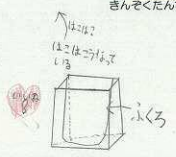 きんぞくたん
はこはこ
はこはこうなって
いる
ふくろ